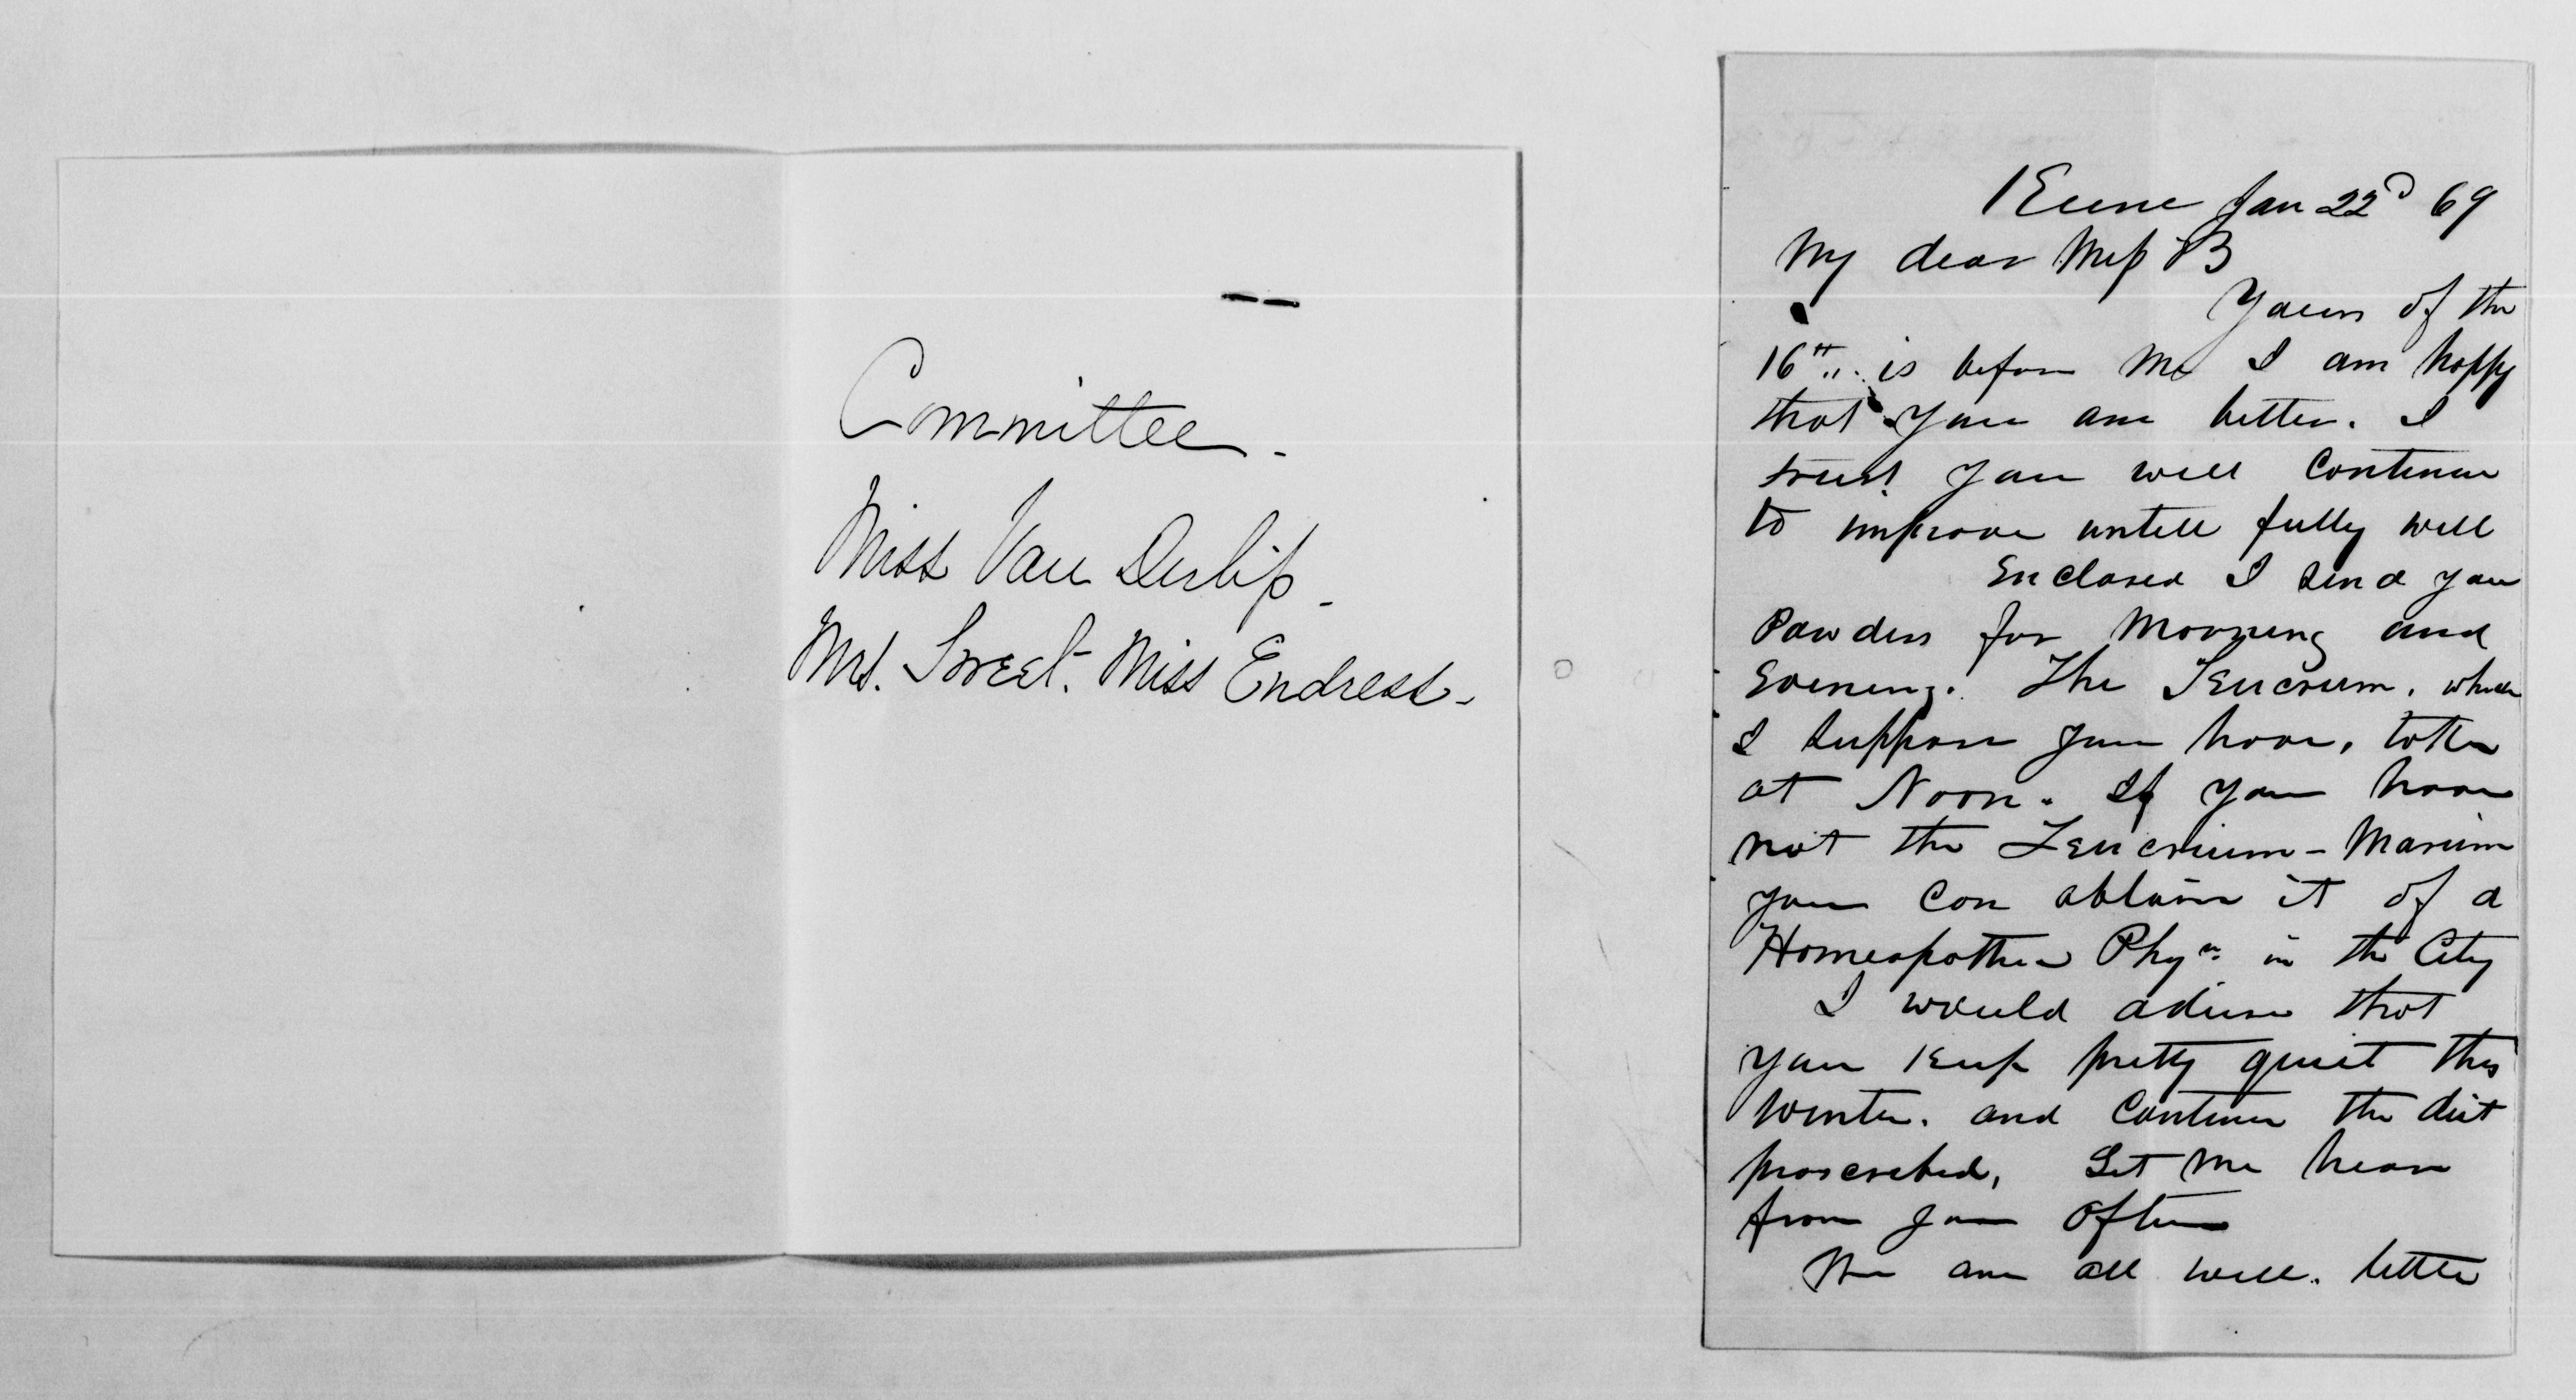 Committee.
Miss Van Derlip.
Mrs. Sweet. Miss Endress.
Keene Jan 22d 69
My dear Miss B
Yours of the
16th is before me I am happy
that you are better. I
trust you will continue
to improve untill fully well
Enclosed I send you
Powders for Morning and
Evening. The Teucrium, which
I suppose you have, take
at Noon. If you have
not the Teucrium-Marum
you can obtain it of a
Homeopathic Phyn in the City
I would advise that
you keep pretty quiet this
Winter. and continue the diet
proscribed, Let me hear
from you often
We are all well. better